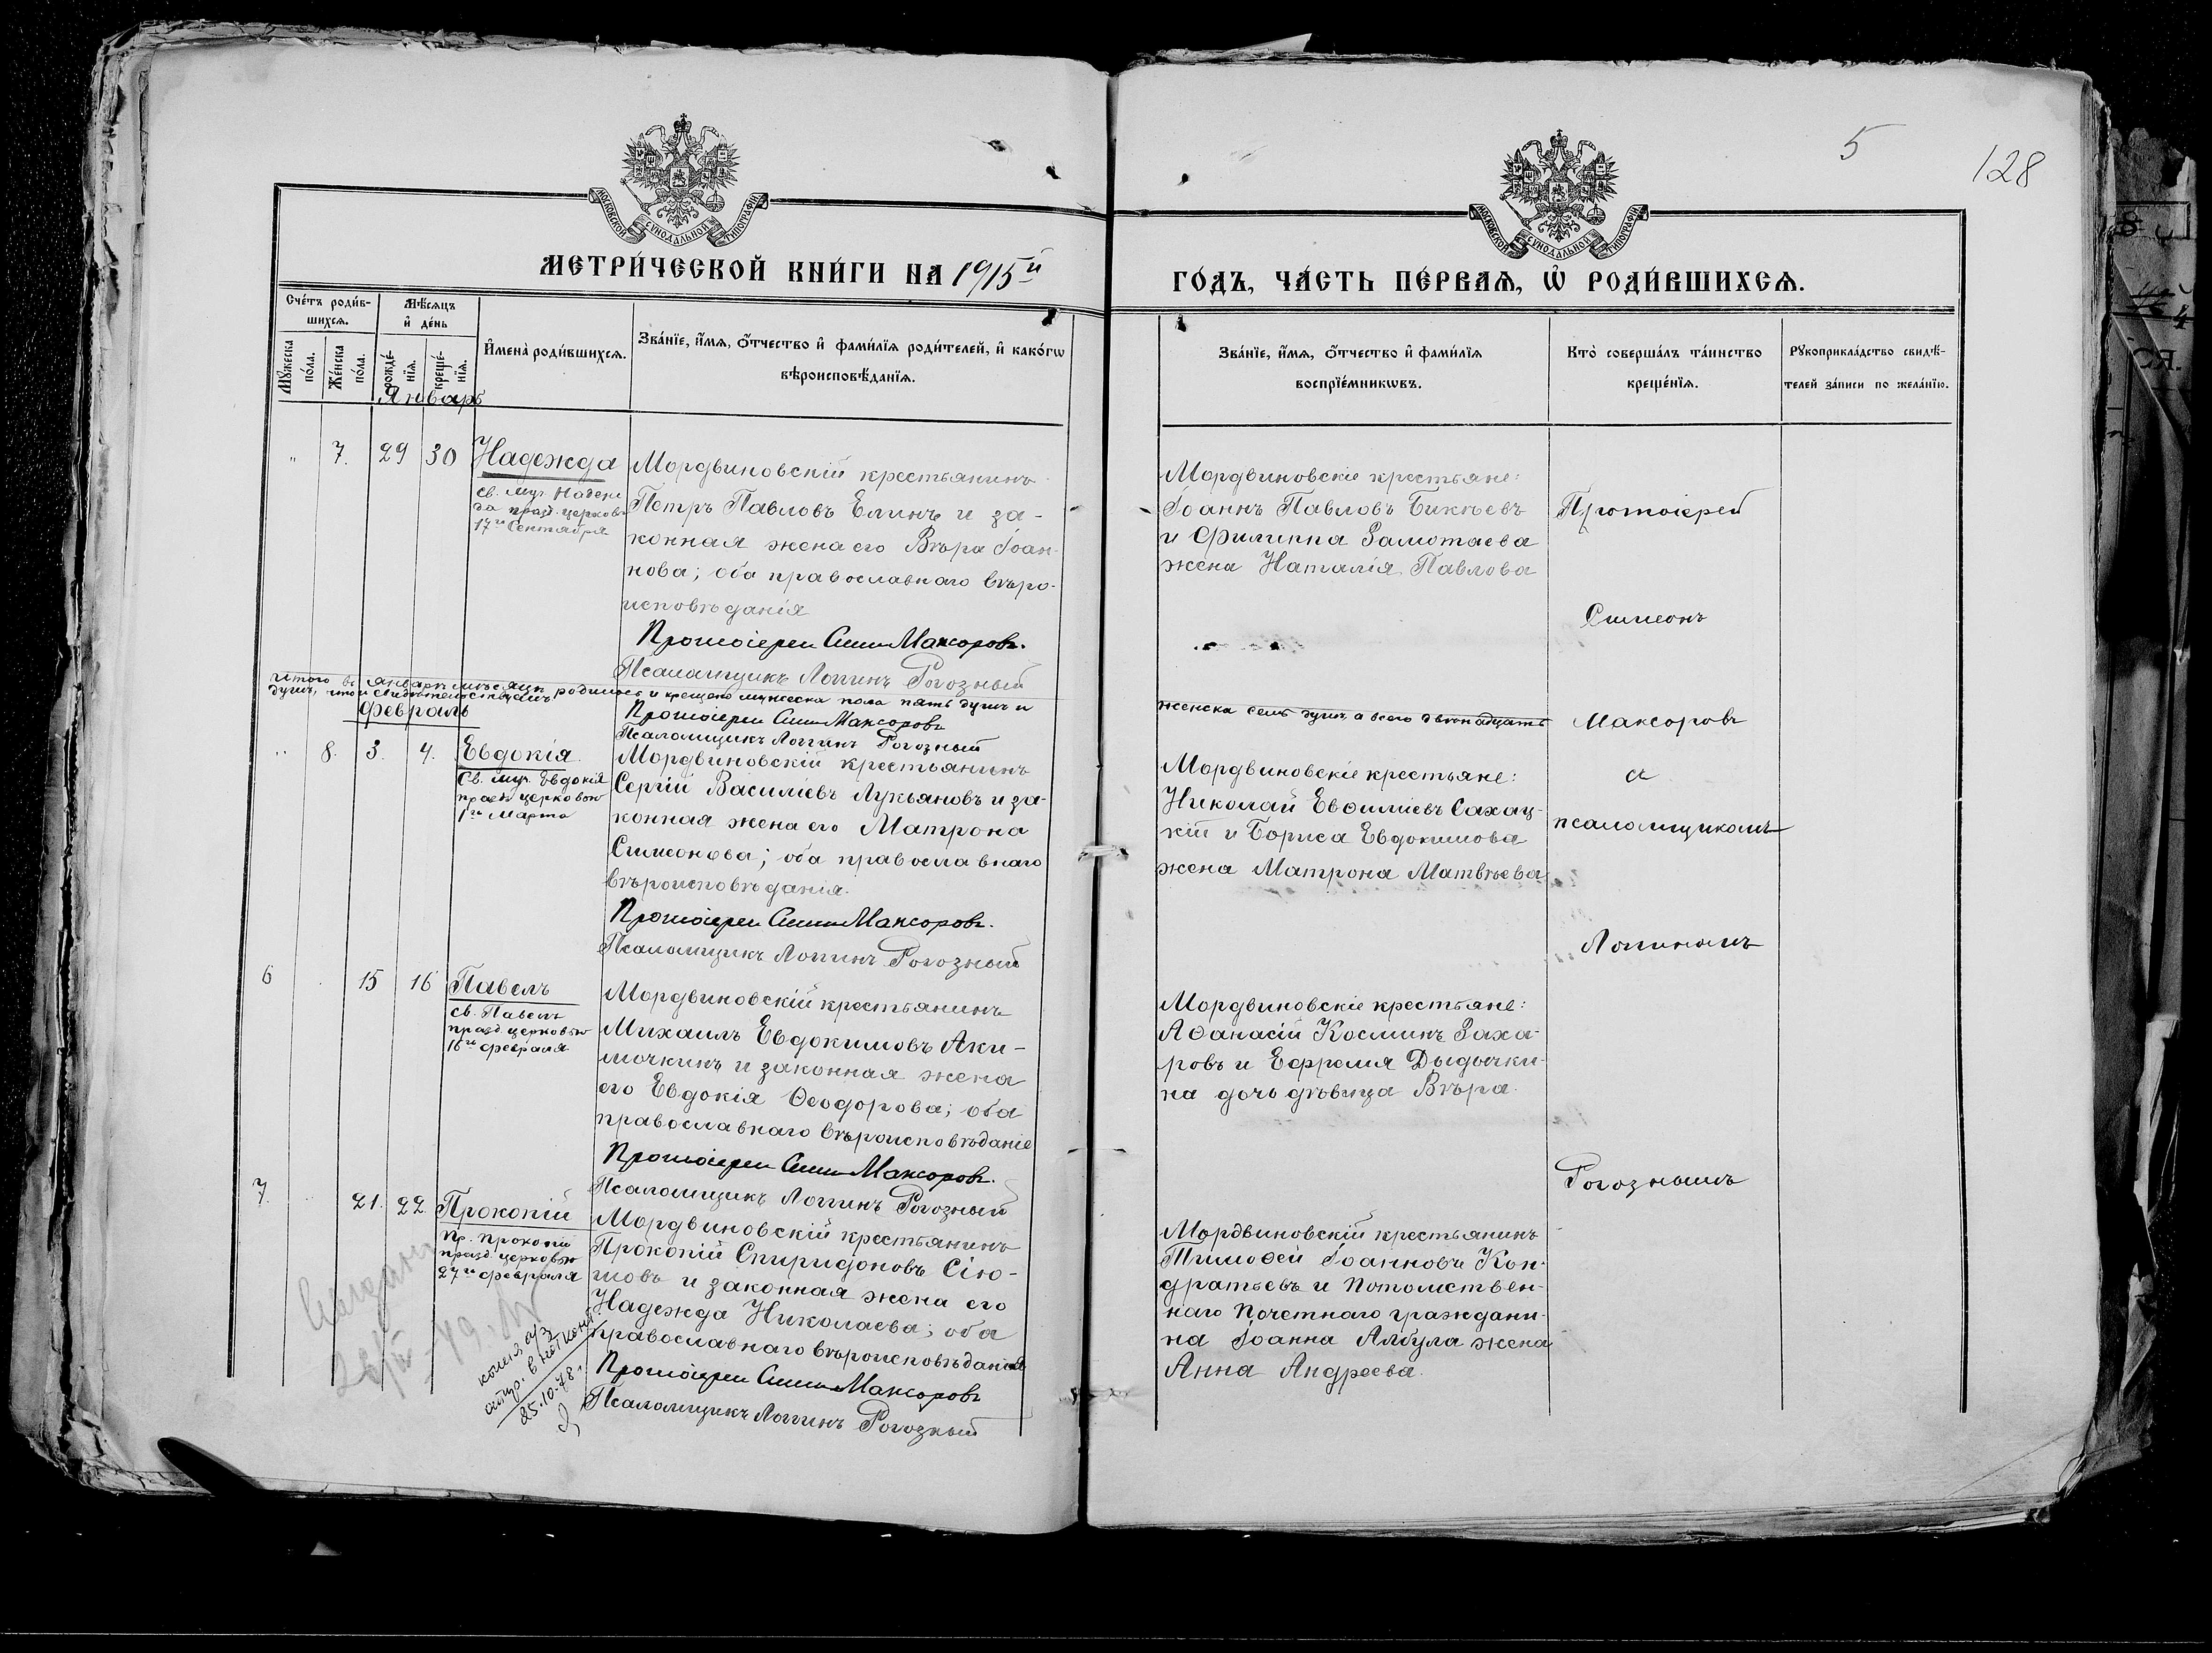 5
128
МОСКОВСКОЙ СѴНОДАЛЬНОЙ ТИПОГРАФІИ
МОСКОВСКОЙ СѴНОДАЛЬНОЙ ТИПОГРАФІИ
МЕТРИ́ЧЕСКОЙ КНИ́ГИ НА 1915й
ГО́ДЪ, ЧА́СТЬ ПЕ́РВАѦ, Ѡ҆ РОДИ́ВШИХСѦ.
Сче́тъ роди́в-
шихсѧ.
Мѣ́сѧцъ
и҆ де́нь
Мꙋ́жеска по́ла.
Же́нска по́ла.
рожде́-
нїѧ.
креще́-
нїѧ.
И҆мена̀ роди́вшихсѧ.
Зва́нїе, и҆́мѧ, ѻ҆́тчество и҆ фами́лїѧ роди́телей, и҆ како́гѡ
вѣроисповѣ́данїѧ.
Зва́нїе, и҆́мѧ, ѻ҆́тчество и҆ фами́лїѧ
воспрїе́мникѡвъ.
Кто̀ соверша́лъ та́инство
креще́нїѧ.
Рꙋкоприкла́дство свидѣ́-
телей за́писи по жела́нїю.
Январь
" 7. 29 30 Надежда
св. муч. Надеж
да празд. церковь
17го Сентября
Мордвиновскій крестьянинъ
Петръ Павловъ Елинъ и за-
конная жена его Вѣра Іоан-
нова; оба православнаго вѣро-
исповѣданія
Протоіерей Сим Максоровъ.
Псаломщикъ Логгинъ Рогозный
Мордвиновскіе крестьяне:
Іоаннъ Павловъ Бикѣевъ
и Филиппа Замотаева
жена Наталія Павлова
Протоіерей
Симеонъ
Максоровъ
а
псаломщикомъ
Логгиномъ
Рогознымъ
Итого въ январѣ мѣсяцѣ родилось и крещено мужеска пола пять душъ и
женска семь душъ, а всего двѣнадцать
душъ, что и свидѣтельствуемъ
Протоіерей Сим Максоровъ
Псаломщикъ Логгинъ Рогозный
Февраль
" 8. 3. 4. Евдокія
Св. муч. Евдокія
празд. церковью
1го Марта
Мордвиновскій крестьянинъ
Сергій Василіевъ Лукьяновъ и за-
конная жена его Матрона
Симеонова; оба православнаго
вѣроисповѣданія.
Протоіерей Сим Максоровъ.
Псаломщикъ Логгинъ Рогозный
Мордвиновскіе крестьяне:
Николай Евѳиміевъ Сахац-
кій и Бориса Евдокимова
жена Матрона Матвѣева
6 15 16 Павелъ
св. Павелъ
празд. церковью
16го февраля
Мордвиновскій крестьянинъ
Михаилъ Евдокимовъ Аки-
мочкинъ и законная жена
его Евдокія Ѳеодорова; оба
православнаго вѣроисповѣданіе
Протоіерей Сим Максоровъ.
Псаломщикъ Логгинъ Рогозный
Мордвиновскіе крестьяне:
Аѳанасій Косминъ Заха-
ровъ и Ефрема Дыдычки-
на дочь дѣвица Вѣра.
7. 21. 22 Прокопій
Пр. Прокопій
празд. церковью
27го февраля
Мордвиновскій крестьянинъ
Прокопій Спиридоновъ Сію-
шовъ и законная жена его
Надежда Николаева; оба
православнаго вѣроисповѣданія
Протоіерей Сим Максоровъ
Псаломщикъ Логгинъ Рогозный
Мордвиновскій крестьянинъ
Тимоѳей Іоанновъ Кон-
дратьевъ и Потомствен-
наго Почетнаго граждани-
на Іоанна Албула жена
Анна Андреева.
копия а/з
25.10.78г